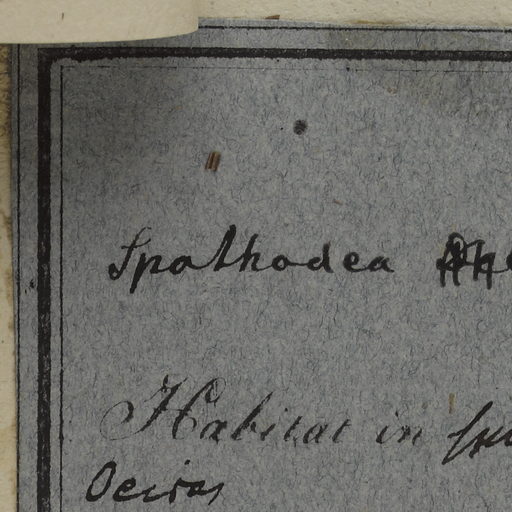 Spathodea
Habitat in
Oeiras